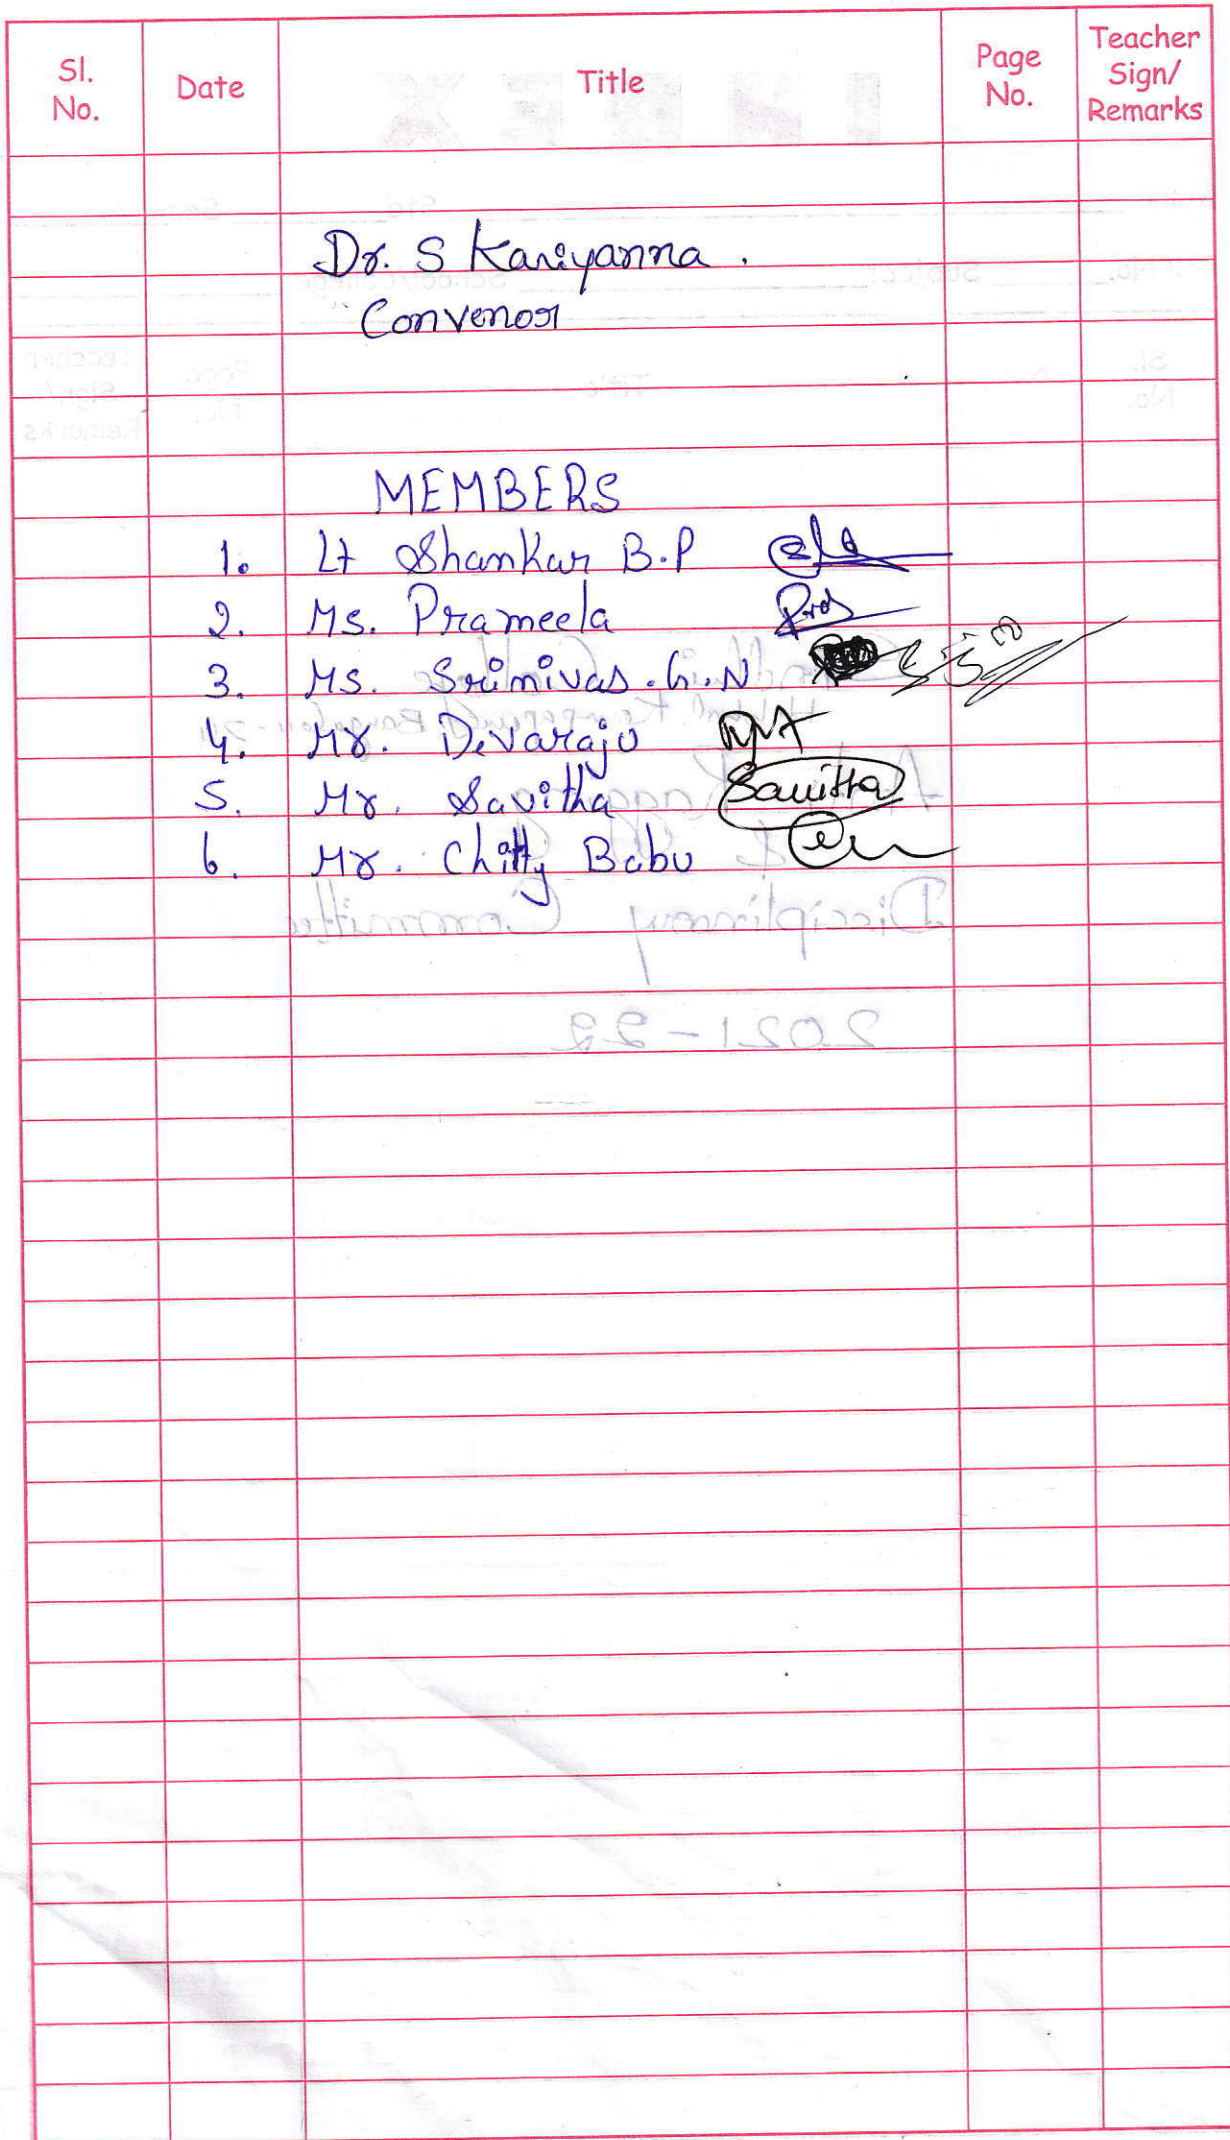 Sl. No. Date Title Page No. Teacher Sign/ Remarks
Dr. S Kariyanna .
Convenor
MEMBERS
1. Lt Shankar B.P
2. Ms. Prameela
3. Ms. Srinivas.G.N
4. Mr. Devaraju
5. Mr. Savitha Savitha
6. Mr. Chitty Babu